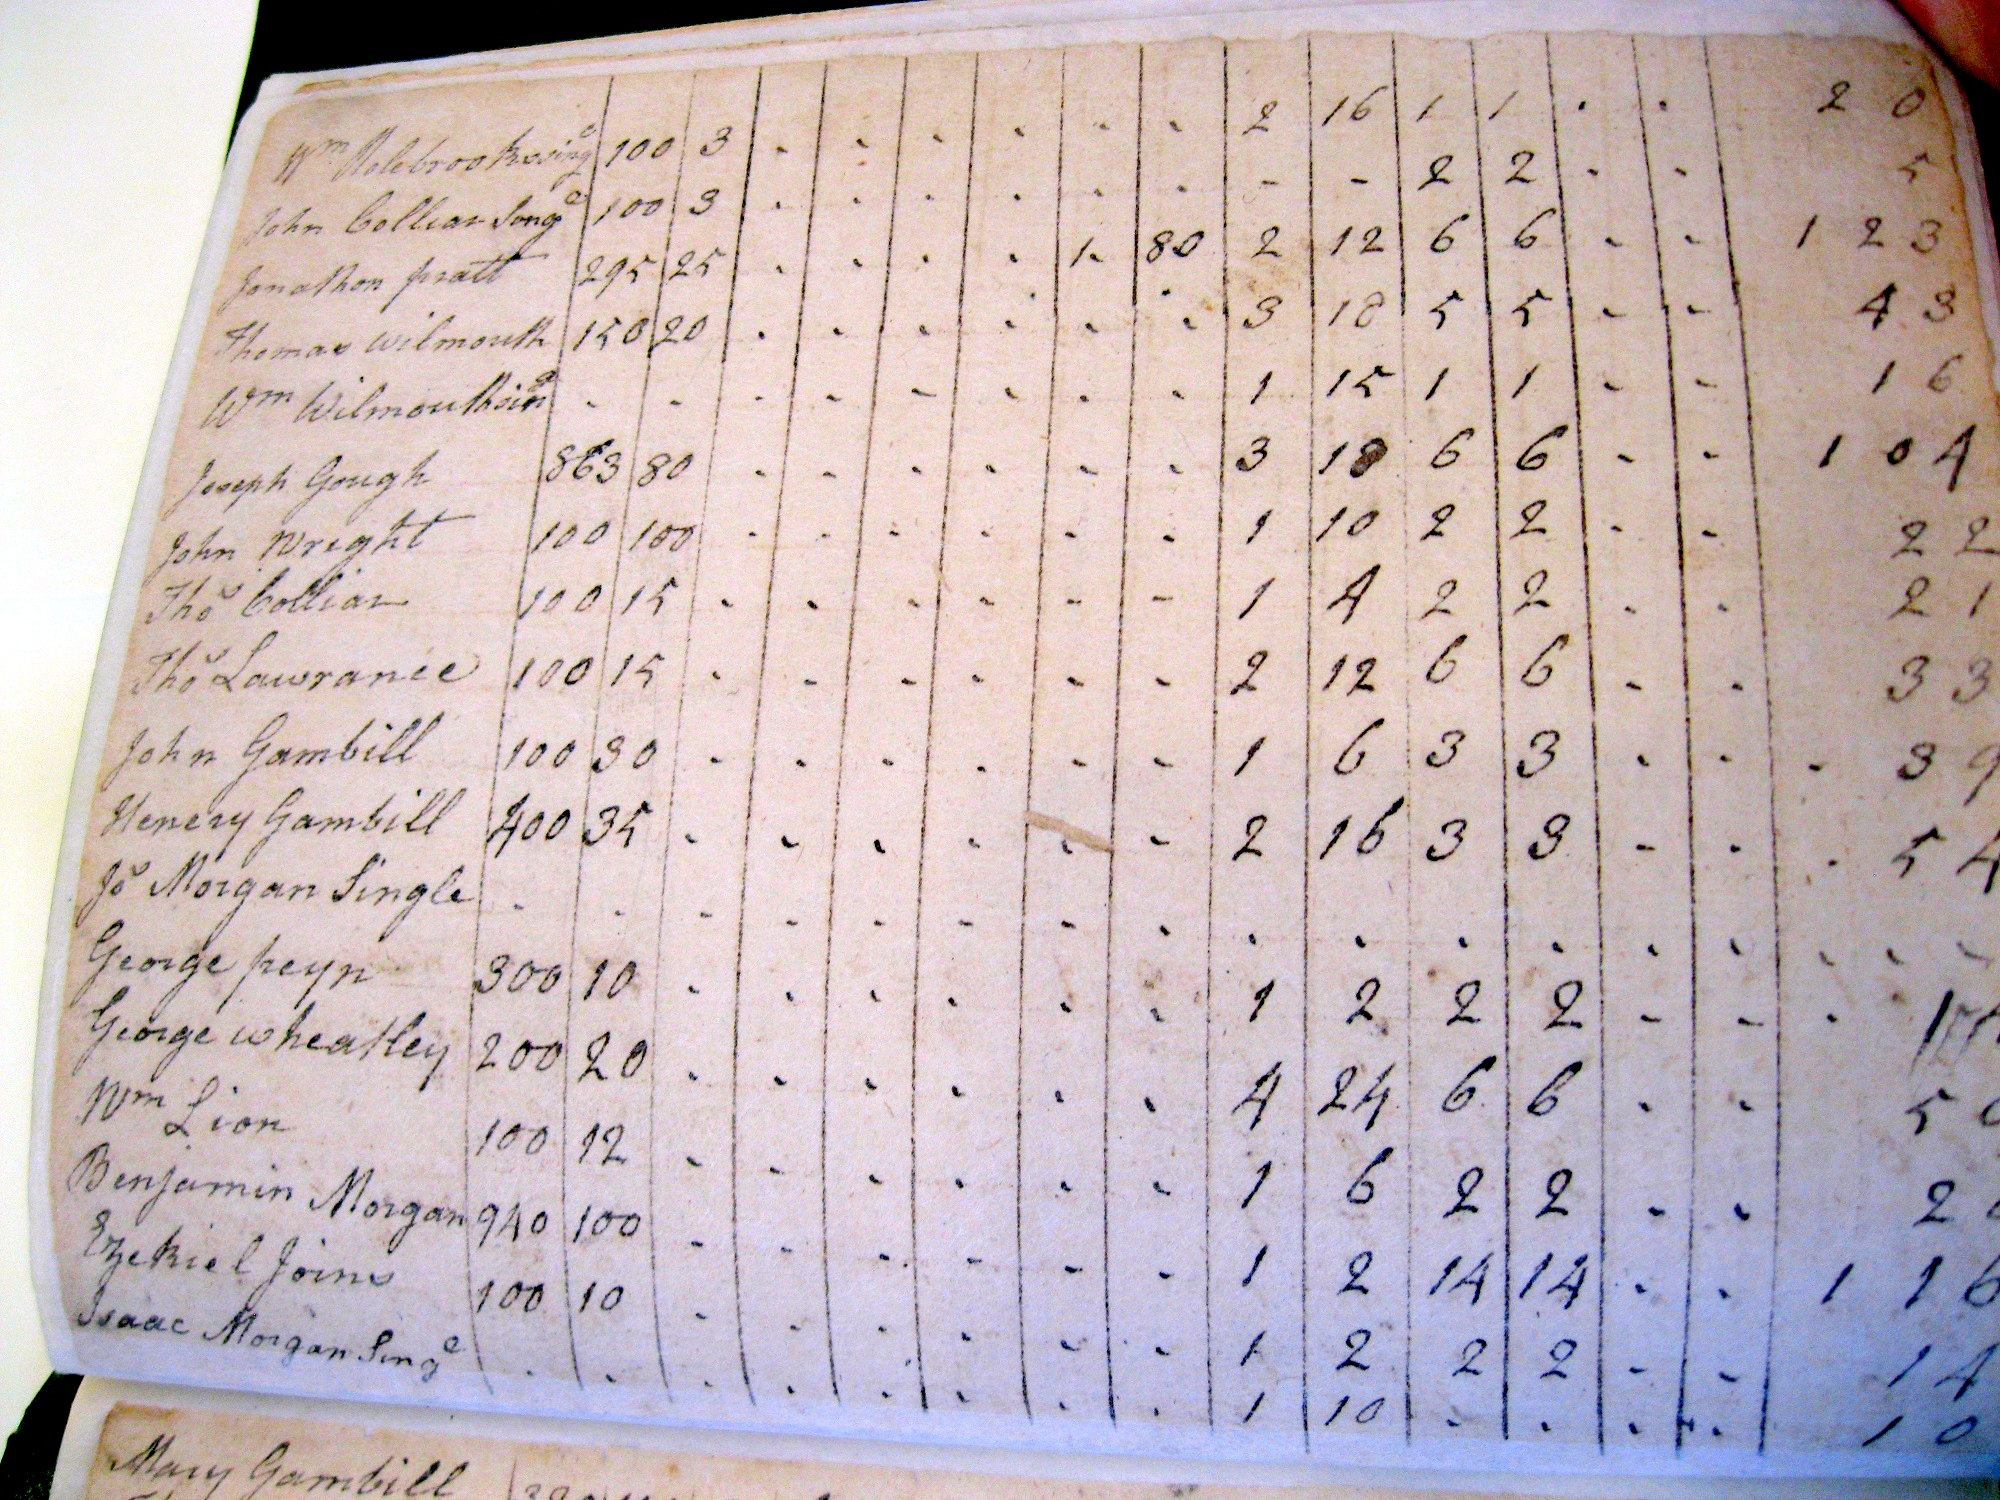 Wm Holebrooks sing^e 100 3 . . . . . . 2 16 1 1 . . 2 0
John Colliar Sing^e 100 3 . . . . . . - - 2 2 . . 5
Jonathon pratt 295 25 . . . . 1. 80 2 12 6 6 . . 1 2 3
Thomas Wilmouth 150 20 . . . . . . 3 18 5 5 . . 4 3
Wm Wilmouth . . . . . . . . 1 15 1 1 . . 1 6
Joseph Gough 863 80 . . . . . . 3 18 6 6 . . 1 0 4
John Wright 100 100 . . . . . . 1 10 2 2 . . 2 2
Tho^s Colliar 100 15 . . . . . . 1 4 2 2 . . 2 1
Tho^s Lawrance 100 15 . . . . . . 2 12 6 6 . . 3 3
John Gambill 100 30 . . . . . . 1 6 3 3 . . . 3 9
Henery Gambill 400 35 . . . . . . 2 16 3 3 . . . 5 4
Jo^s Morgan Single . . . . . . . . . . . . . . . . .
George peyn 300 10 . . . . . . 1 2 2 2 . . .
George wheatley 200 20 . . . . . . 4 24 6 6 . . 5
Wm Lion 100 12 . . . . . . 1 6 2 2 . . 2
Benjamin Morgan 940 100 . . . . . . 1 2 14 14 . . 1 1 6
Ezekiel Joins 100 10 . . . . . . 1 2 2 2 . . 1 4
Isaac Morgan Sing^e . . . . . . . . 1 10 . . . . 1 0
Mary Gambill